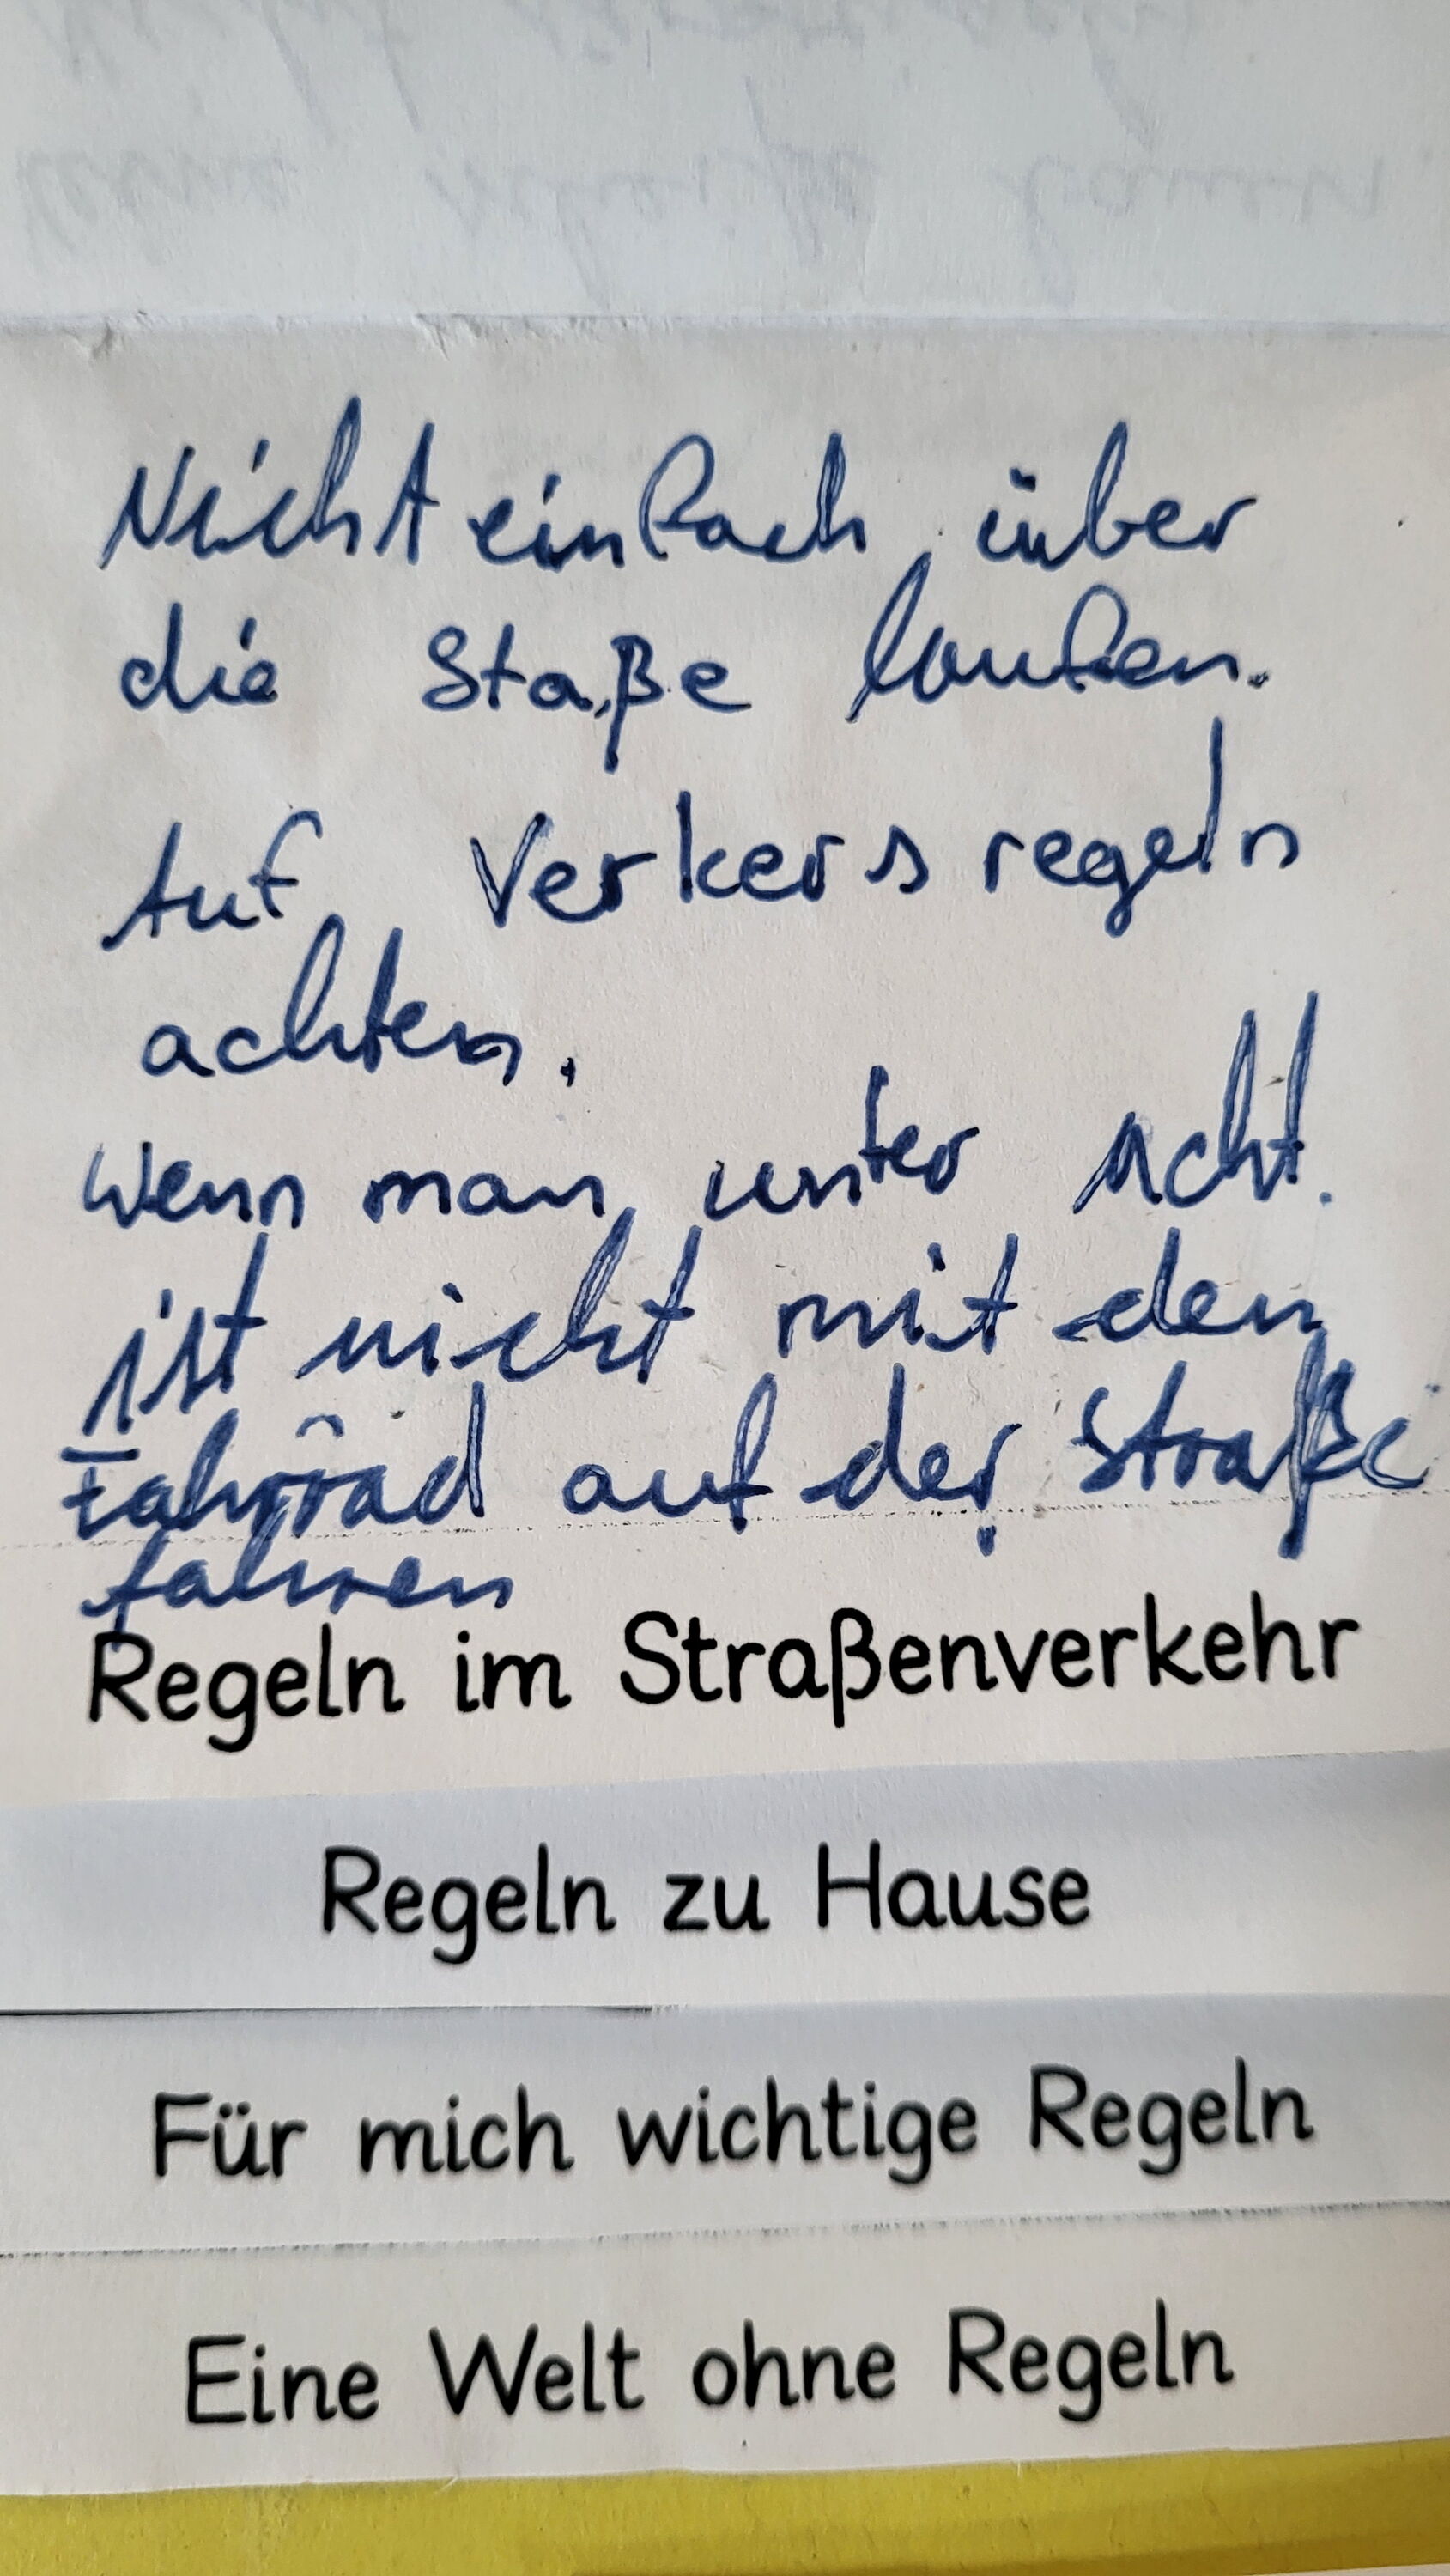 Nicht einfach über
die Staße laufen.
Auf Verkersregeln
achten.
Wenn man unter Acht.
ist nicht mit den
Fahrrad auf der Straße
fahren
Regeln im Straßenverkehr
Regeln zu Hause
Für mich wichtige Regeln
Eine Welt ohne Regeln